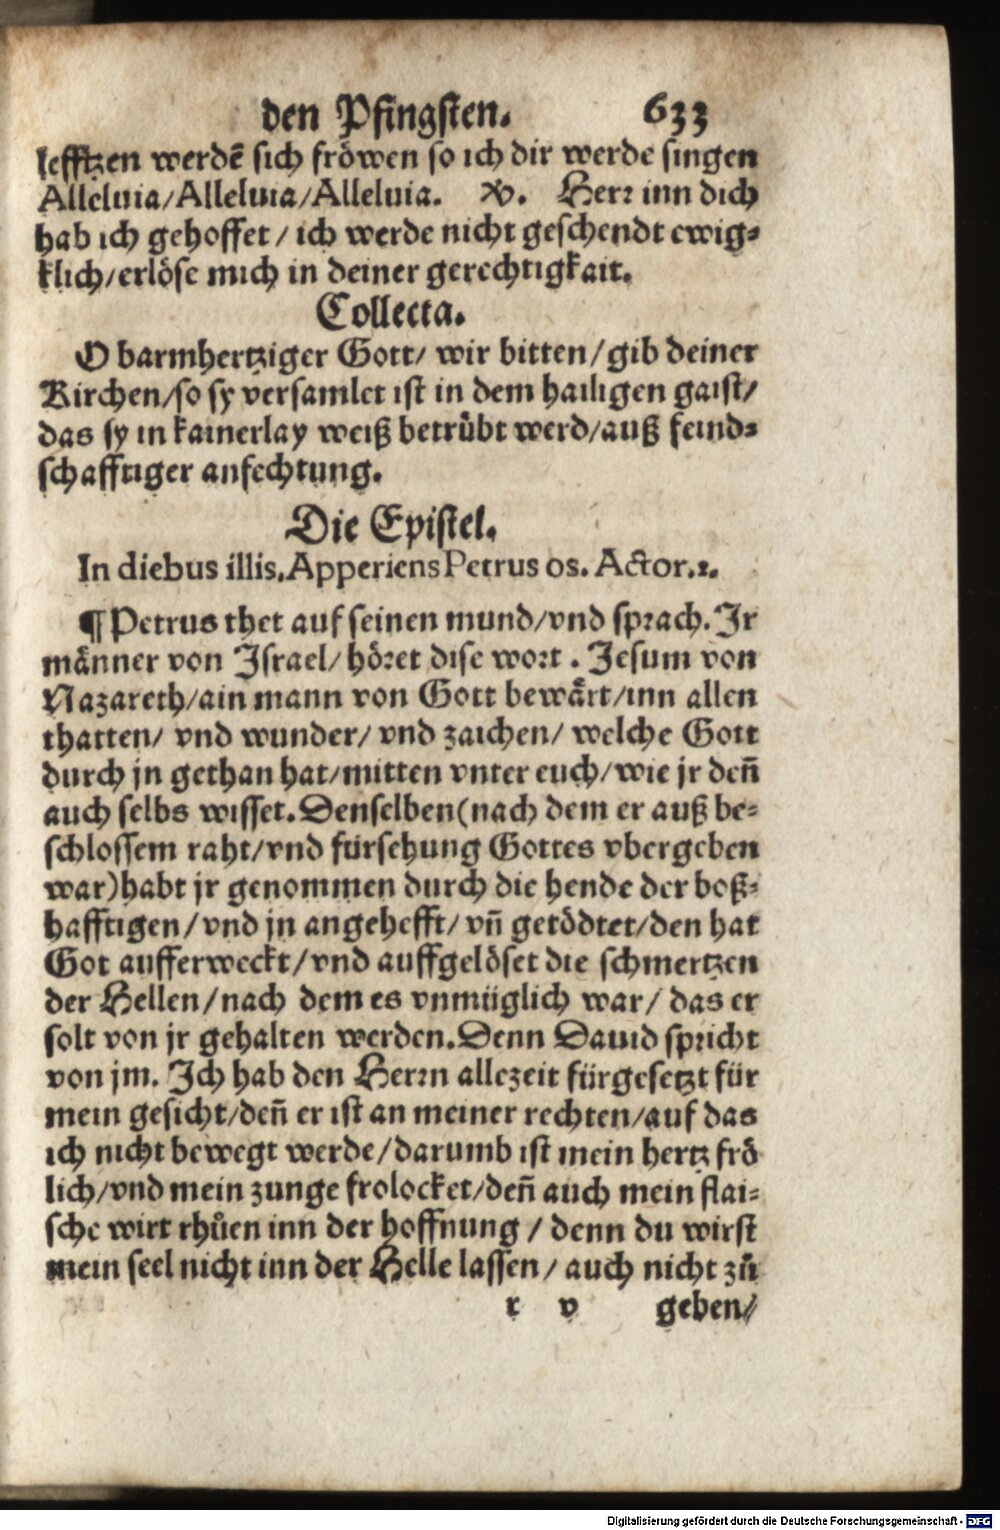 den Pfingsten. 633
lefftzen werdē sich fröwen so ich dir werde singen
Alleluia/Alleluia/Alleluia. V. Herr inn dich
hab ich gehoffet / ich werde nicht geschendt ewig⸗
klich/erlöse mich in deiner gerechtigkait.
Collecta.
O barmhertziger Gott/ wir bitten/gib deiner
Kirchen/so sy versamlet ist in dem hailigen gaist/
das sy in kainerlay weiß betrübt werd/auß feind⸗
schafftiger anfechtung.
Die Epistel.
In diebus illis. Apperiens Petrus os. Actor.2.
¶ Petrus thet auf seinen mund/vnd sprach. Ir
männer von Israel/ höret dise wort . Jesum von
Nazareth/ain mann von Gott bewärt/inn allen
thatten/ vnd wunder/ vnd zaichen/ welche Gott
durch jn gethan hat/mitten vnter euch/wie jr deñ
auch selbs wisset. Denselben(nach dem er auß be⸗
schlossem raht/vnd fürsehung Gottes vbergeben
war)habt jr genommen durch die hende der boß⸗
hafftigen/vnd jn angehefft/ vñ getödtet/den hat
Got aufferweckt/vnd auffgelöset die schmertzen
der Hellen/nach dem es vnmüglich war/ das er
solt von jr gehalten werden. Denn Dauid spricht
von jm. Ich hab den Herrn allezeit fürgesetzt für
mein gesicht/deñ er ist an meiner rechten/auf das
ich nicht bewegt werde/darumb ist mein hertz frö
lich/vnd mein zunge frolocket/deñ auch mein flai⸗
sche wirt rhůen inn der hoffnung / denn du wirst
mein seel nicht inn der Helle lassen/ auch nicht zů
r v geben/
Digitalisierung gefördert durch die Deutsche Forschungsgemeinschaft - DFG